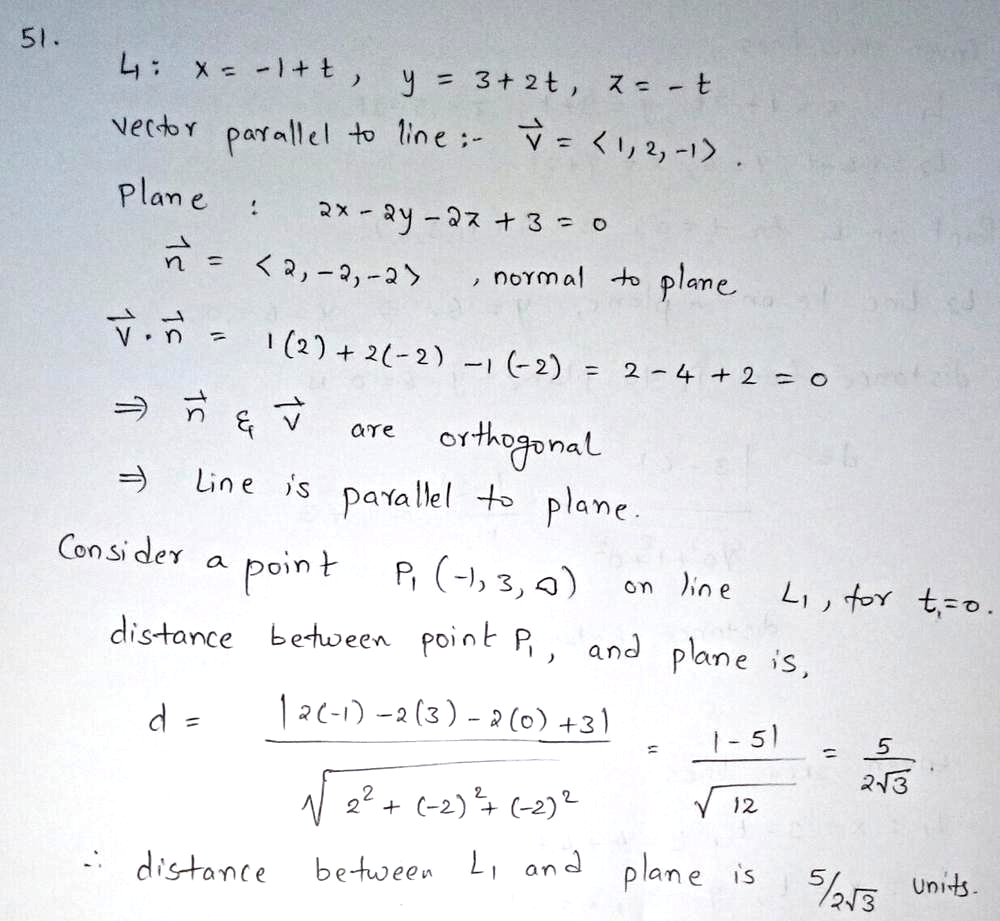 51.
L₁: x = -1+t, y = 3+2t, z = -t
vector parallel to line :- v⃗ = <1, 2, -1>.
Plane : 2x - 2y - 2z + 3 = 0
n⃗ = <2, -2, -2> , normal to plane
v⃗ · n⃗ = 1(2) + 2(-2) -1(-2) = 2 - 4 + 2 = 0
⇒ n⃗ & v⃗ are orthogonal
⇒ Line is parallel to plane.
Consider a point P₁ (-1, 3, 0) on line L₁, for t₁=0.
distance between point P₁, and plane is,
d = |2(-1) -2(3) -2(0) +3| / √(2² + (-2)² + (-2)²) = |-5| / √12 = 5 / 2√3 .
∴ distance between L₁ and plane is 5/2√3 units.